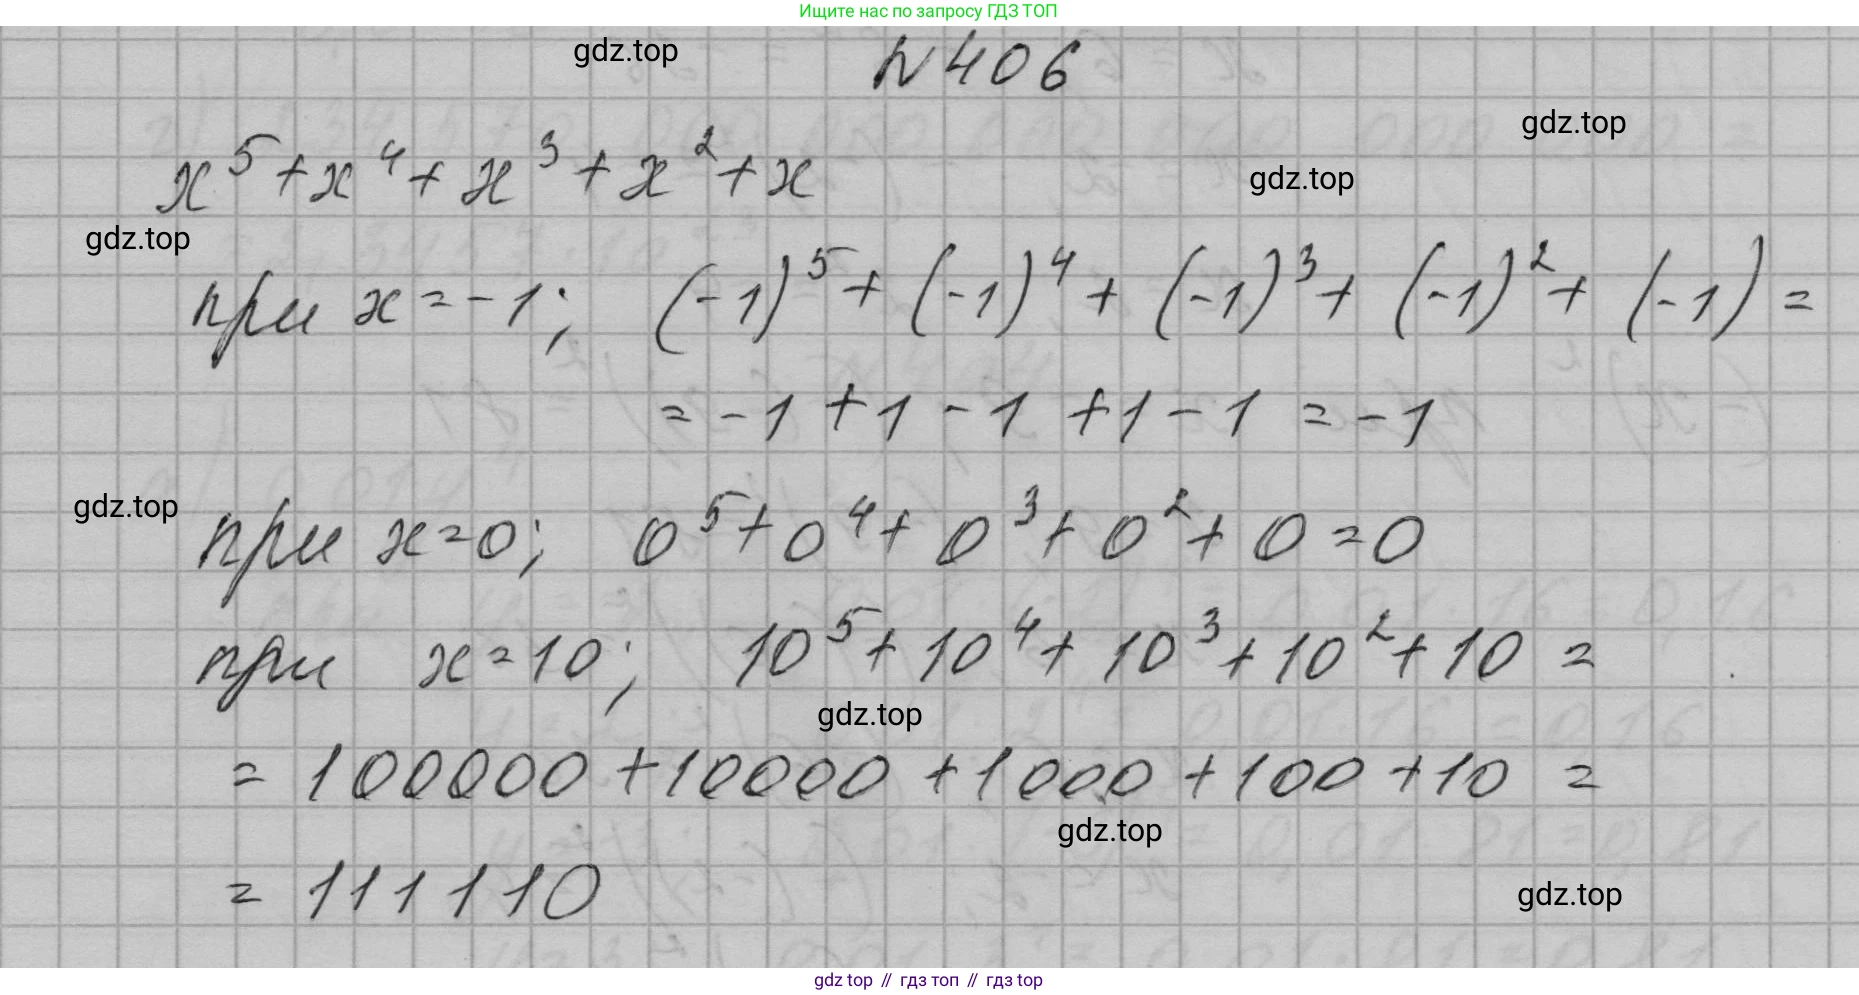 Ищите нас по запросу ГДЗ ТОП
gdz.top
N 406
gdz.top
x⁵ + x⁴ + x³ + x² + x
gdz.top
gdz.top
при x = -1; (-1)⁵ + (-1)⁴ + (-1)³ + (-1)² + (-1) =
= -1 + 1 - 1 + 1 - 1 = -1
gdz.top
при x = 0; 0⁵ + 0⁴ + 0³ + 0² + 0 = 0
при x = 10; 10⁵ + 10⁴ + 10³ + 10² + 10 =
gdz.top
= 100000 + 10000 + 1000 + 100 + 10 =
gdz.top
= 111110
gdz.top
gdz top // гдз топ // гдз top